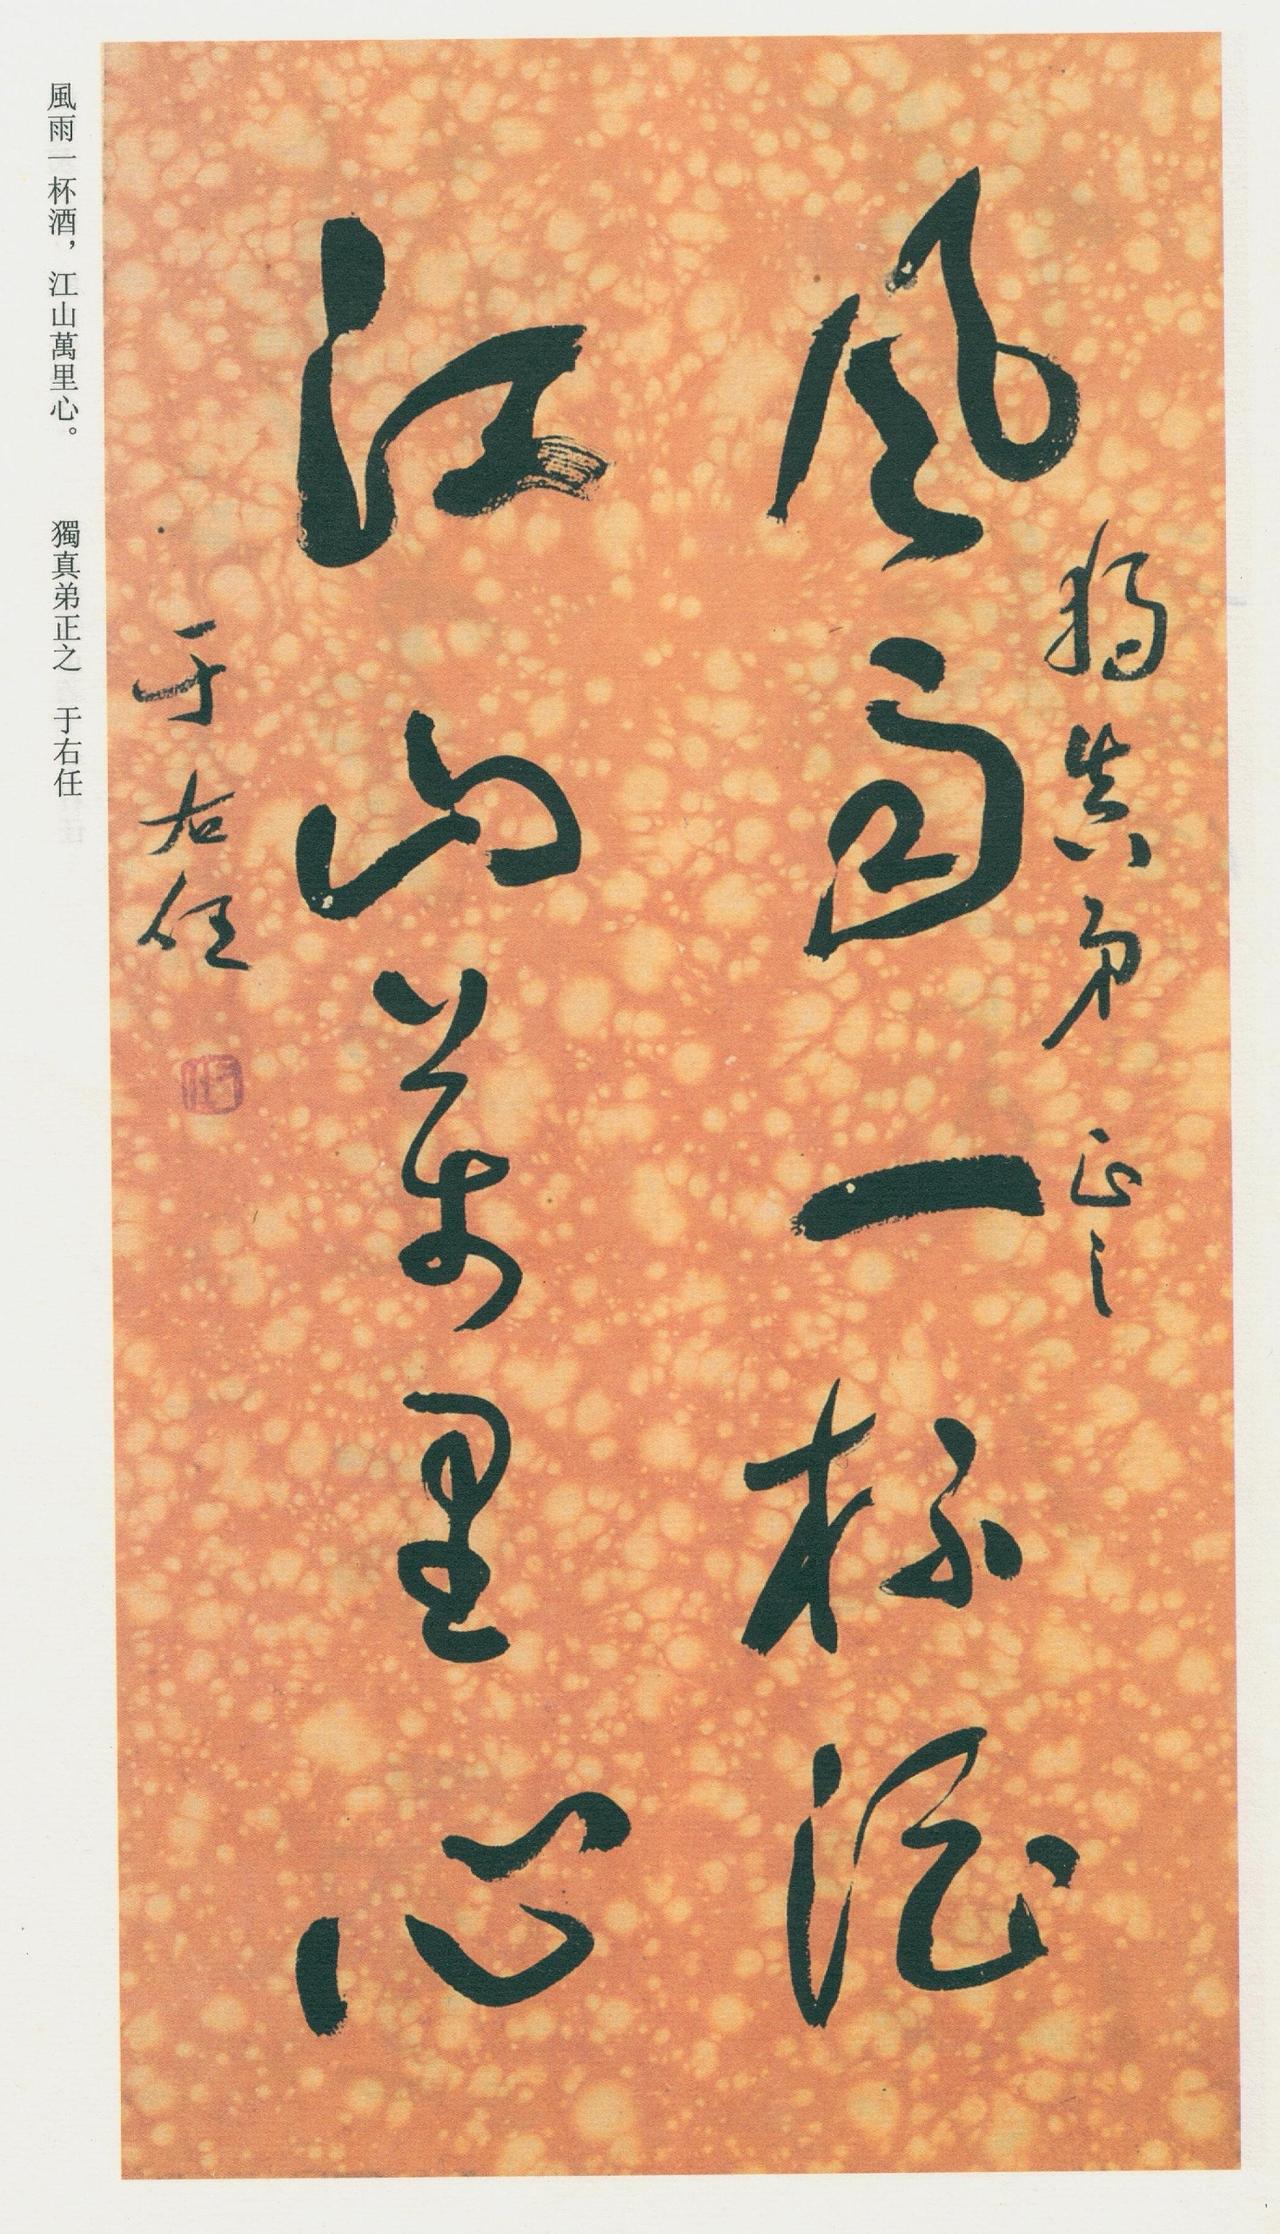 風雨一杯酒
江山萬里心
獨真弟 正之
于右任
風雨一杯酒，江山萬里心。 獨真弟正之 于右任